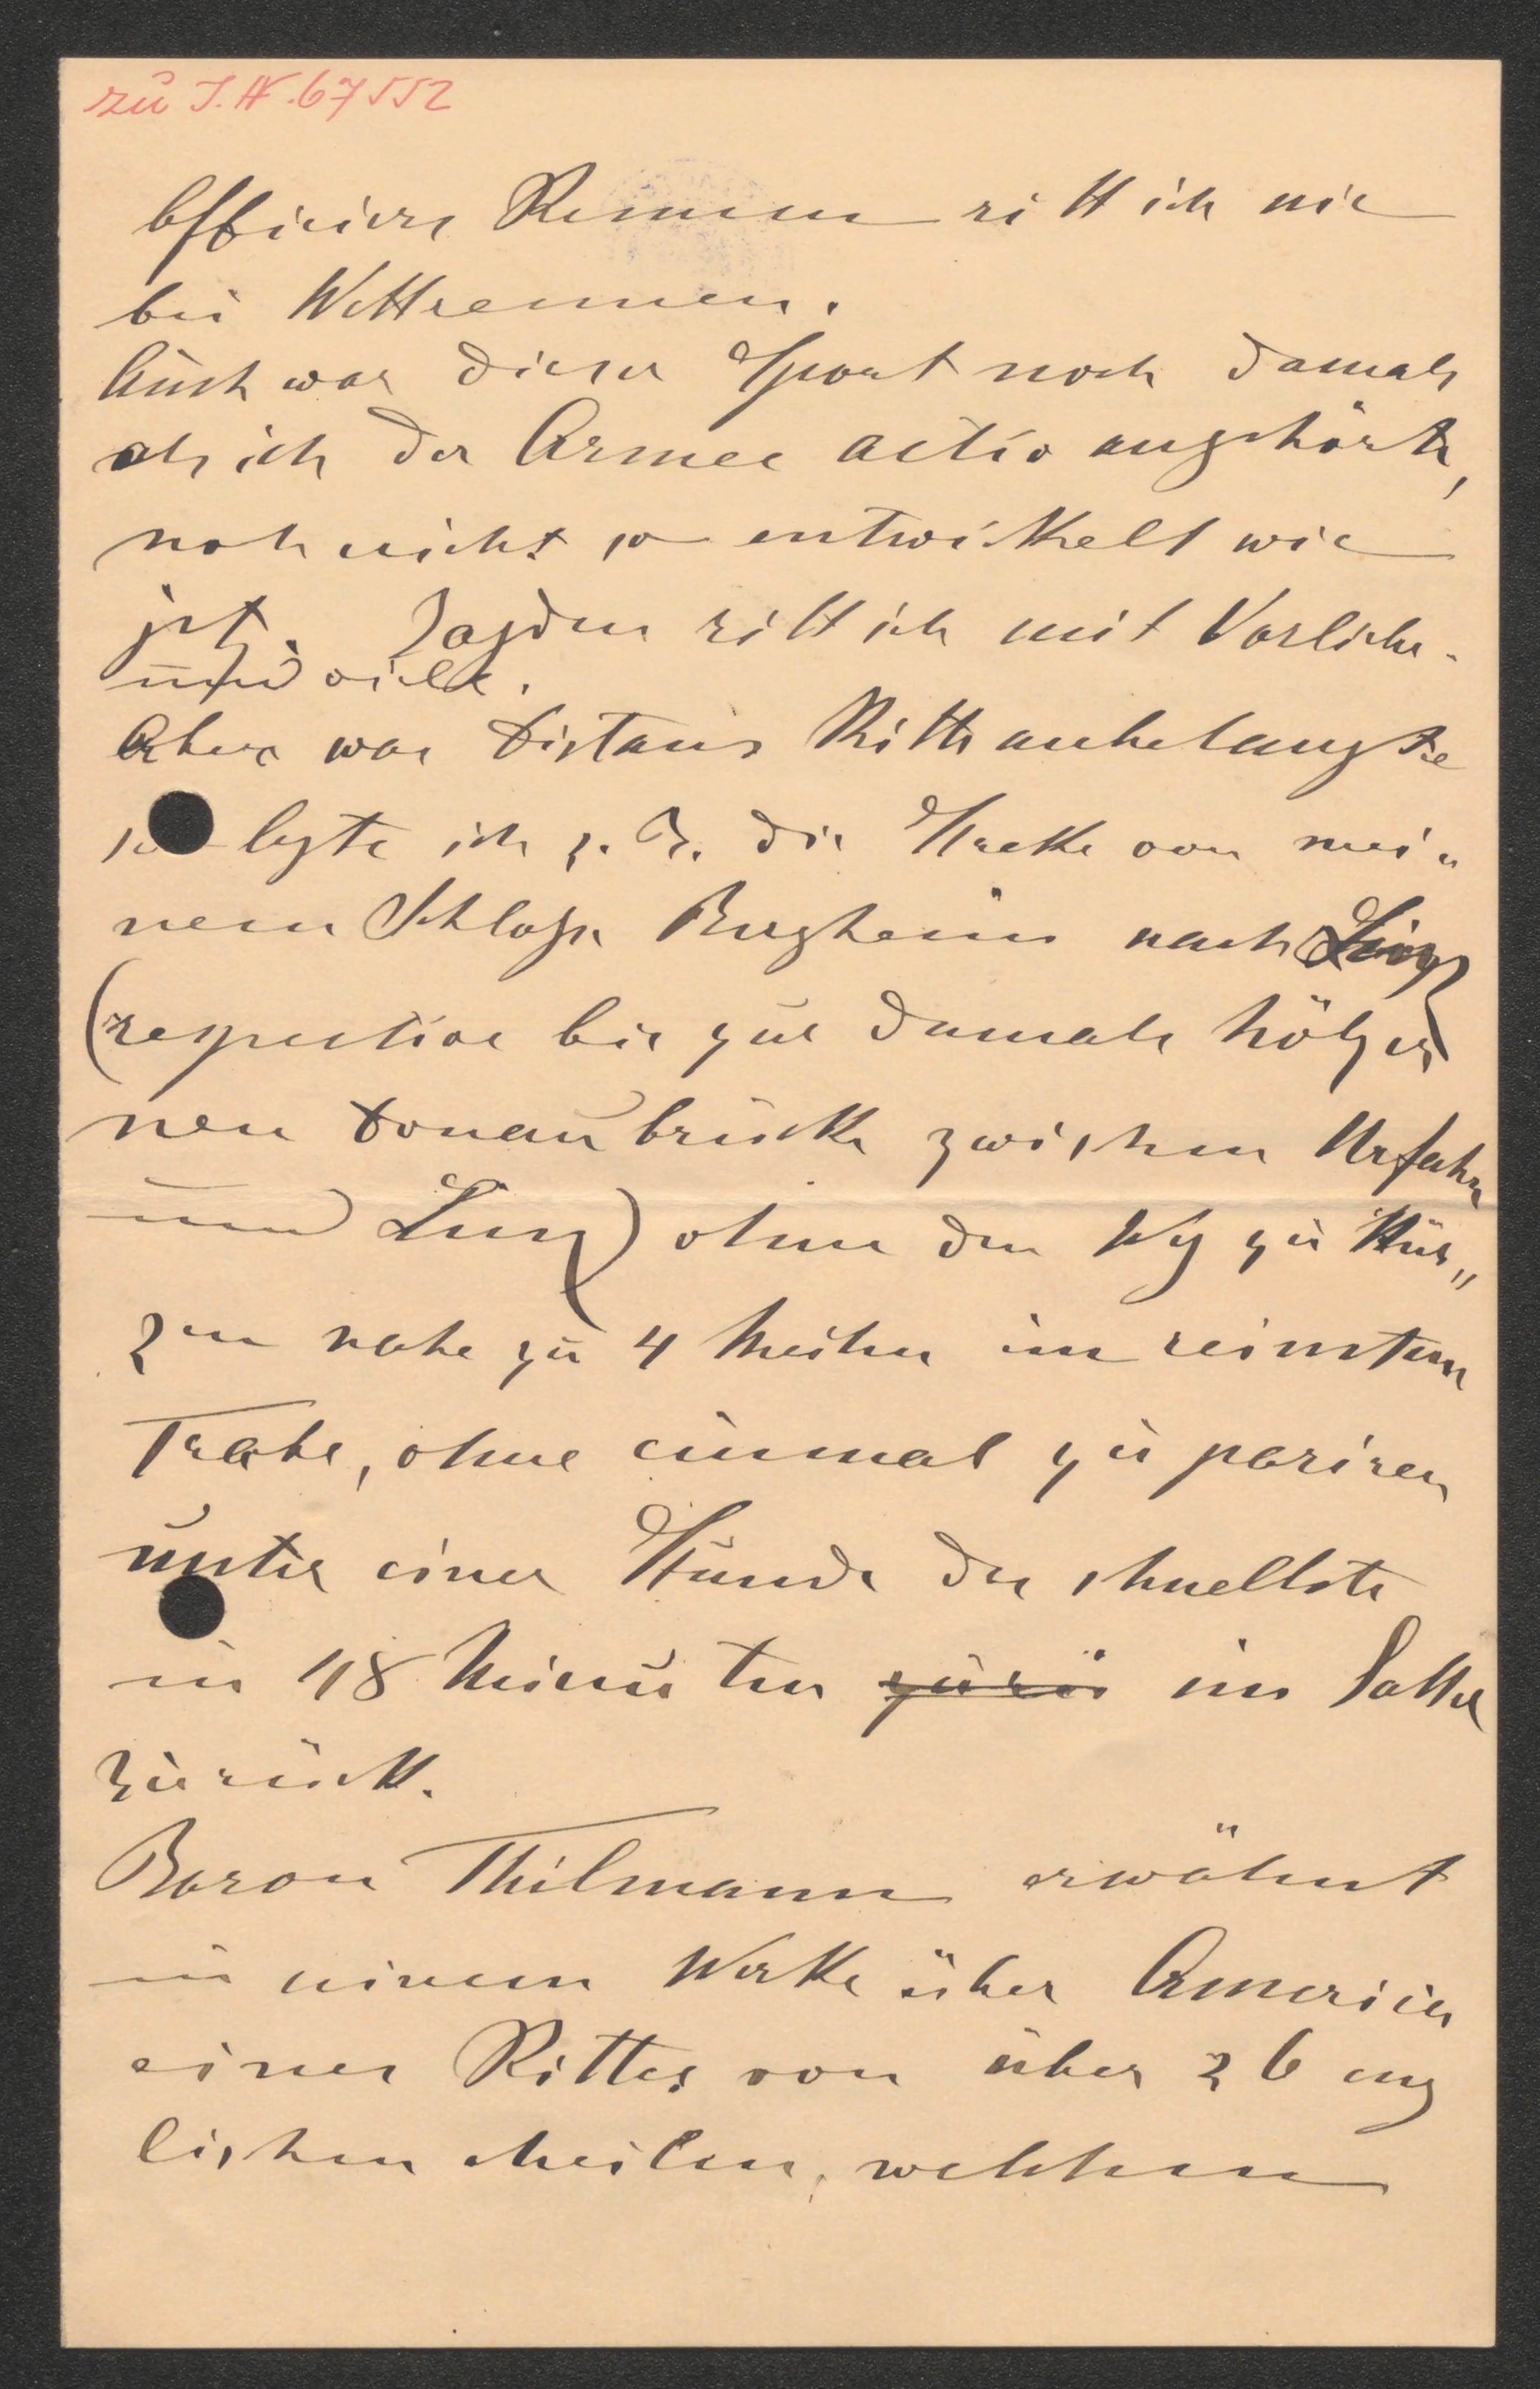 zu I.N. 67552
Officiers Rennen ritt ich nie
bei Wettrennen.
Auch war dieser Sport noch damals
als ich der Armee activ angehörte,
noch nicht so entwickelt wie
jetzt. Jagden ritt ich mit Vorliebe
und viele.
Aber was Distanz Ritte anbelangte
so legte ich z. B. die Strecke von mei-
nem Schlosse Bergheim nach Linz
(respective bis zur damals hölzer
nen Donaubrücke zwischen Urfahr
und Linz) ohne den Weg zu kür„
zen nahe zu 4 Meilen im reinsten
Trabe, ohne einmal zu pariren
unter einer Stunde der schnellste
in 48 Minuten zurü im Sattel
zurück.
Baron Thilmann erwähnt
in einem Werke über America
eines Rittes von über 26 eng
lischen Meilen, welchen